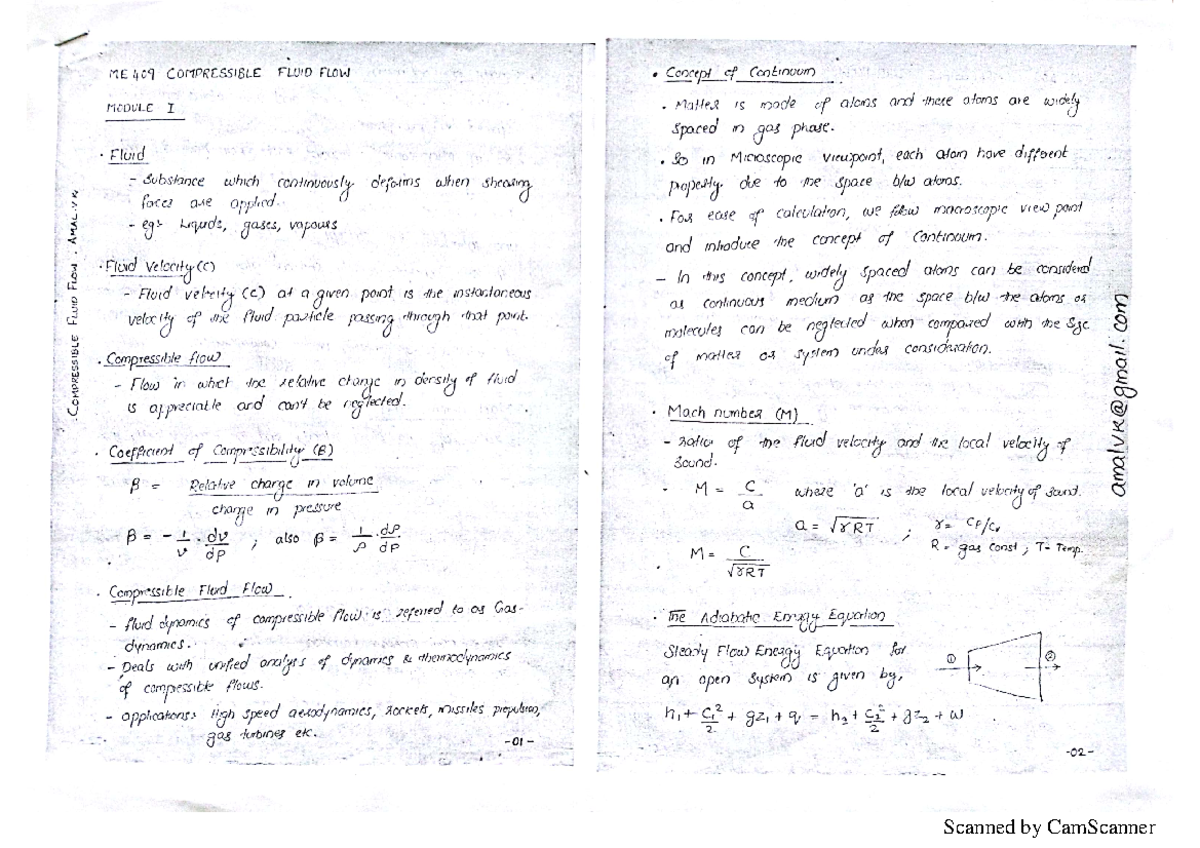 ME 409 COMPRESSIBLE FLUID FLOW
MODULE I
• Fluid
- Substance which continuously deforms when shearing
forces are applied.
- eg:- Liquids, gases, vapours
• Fluid Velocity (C)
- Fluid velocity (C) at a given point is the instantaneous
velocity of the fluid particle passing through that point.
• Compressible flow
- Flow in which the relative change in density of fluid
is appreciable and can't be neglected.
• Coefficient of Compressibility (B)
β = Relative change in volume
change in pressure
β = - 1/v · dv/dp ; also β = 1/ρ · dρ/dp
• Compressible Fluid Flow.
- fluid dynamics of compressible flow is referred to as Gas-
dynamics.
- Deals with unified analysis of dynamics & thermodynamics
of compressible flows.
- applications: High speed aerodynamics, rockets, missiles propulsion,
gas turbines etc.
-01-
COMPRESSIBLE FLUID FLOW . AMAL.V.K
• Concept of Continuum
• Matter is made of atoms and these atoms are widely
spaced in gas phase.
• So in Microscopic viewpoint, each atom have different
property. due to the space b/w atoms.
• For ease of calculation, we follow macroscopic view point
and introduce the concept of Continuum.
- In this concept, widely spaced atoms can be considered
as continuous medium as the space b/w the atoms or
molecules can be neglected when compared with the size
of matter or system under consideration.
• Mach number (M)
- ratio of the fluid velocity and the local velocity of
sound.
• M = C/a where 'a' is the local velocity of sound.
a = √γRT ; γ = Cp/Cv
R = gas const ; T = Temp.
• M = C/√γRT
• The Adiabatic Energy Equation
Steady Flow Energy Equation for
an open system is given by,
① ②
h₁ + C₁²/2 + gz₁ + q = h₂ + C₂²/2 + gz₂ + w
-02-
amalvk@gmail.com
Scanned by CamScanner